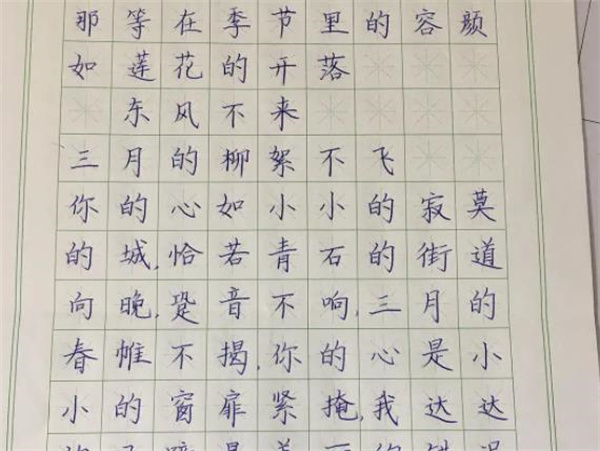 那等在季节里的容颜
如莲花的开落
东风不来
三月的柳絮不飞
你的心如小小的寂莫
的城,恰若青石的街道
向晚,跫音不响,三月的
春帷不揭,你的心是小
小的窗扉紧掩,我达达